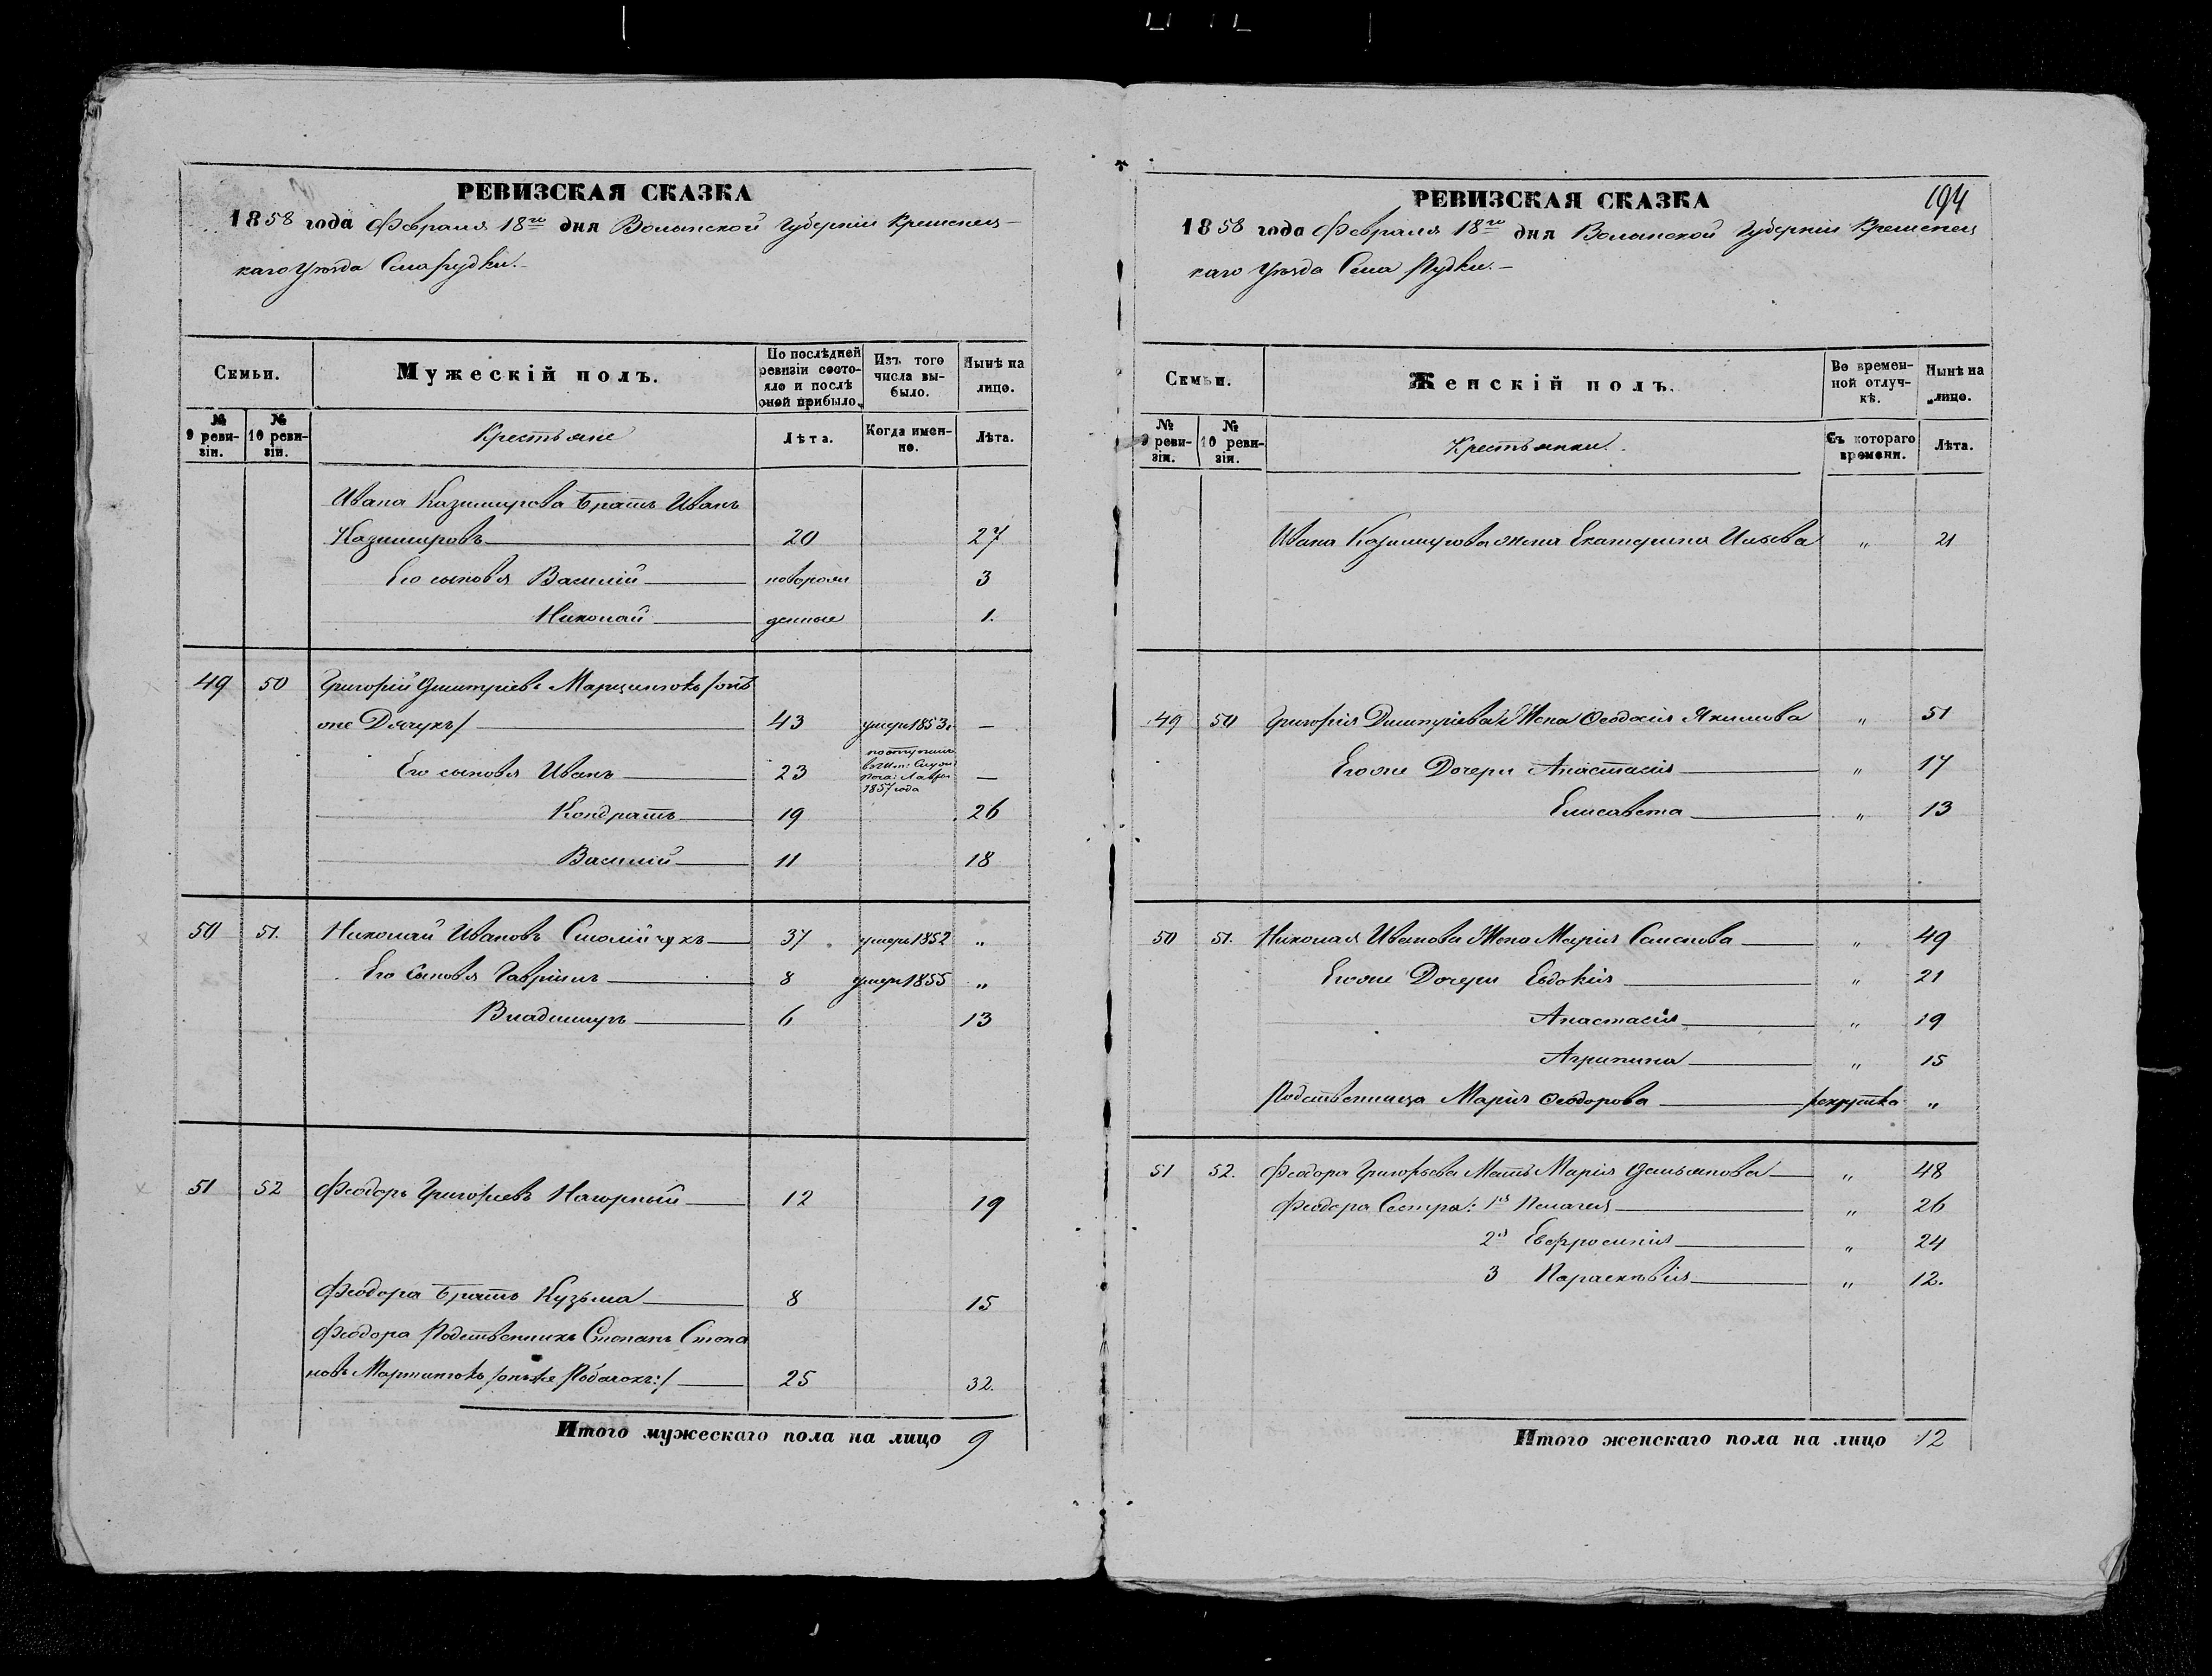 РЕВИЗСКАЯ СКАЗКА
1858 года Февраля 18го дня Волынской Губерніи Кременец-
каго Уѣзда Села Рудки.
Семьи.
Мужескій полъ.
По послѣдней ревизіи состо-яло и послѣ оной прибыло.
Изъ того числа вы-было.
Нынѣ на лицо.
№ 9 реви-зіи.
№ 10 реви-зіи.
Крестьяне
Лѣта.
Когда имен-но.
Лѣта.
Ивана Казимирова Братъ Иванъ
Казимировъ 20 27
Его сыновя Василій новорож 3
Николай денные 1.
49 50 Григорій Дмитріевъ Марцинюкъ /онъ
же Дячукъ/ 43 умеръ 1853. —
Его сыновя Иванъ 23 поступилъ 1857 года —
Кондратъ 19 26
Василій 11 18
50 51. Николай Ивановъ Смолійчукъ 37 умеръ 1852 „
Его Сыновя Гавріилъ 8 умеръ 1855 „
Владимиръ 6 13
51 52 Феодоръ Григорьевъ Нагорный 12 19
Феодора Братъ Кузьма 8 15
Феодора Родственникъ Степанъ Степа
новъ Мартинюкъ /онъ же 25 32.
Итого мужескаго пола на лицо 9
194
РЕВИЗСКАЯ СКАЗКА
1858 года Февраля 18го дня Волынской Губерніи Кременец
каго Уѣзда Села Рудки.
Семьи.
Женскій полъ.
Во времен-ной отлуч-кѣ.
Нынѣ на лицо.
№ 9 реви-зіи.
№ 10 реви-зіи.
Крестьянки.
Съ котораго времени.
Лѣта.
Ивана Казимирова жена Екатерина Ильева „ 21
49 50 Григорія Дмитріева Жена Феодосія Якимова „ 51
Егоже Дочери Анастасія „ 17
Елисавета „ 13
50 51. Николая Иванова Жена Марія Самсонова „ 49
Егоже Дочери Евдокія „ 21
Анастасія „ 19
Агрипина „ 15
Родственница Марія Феодорова рекрутка „
51 52. Феодора Григорьева Мать Марія Демьянова „ 48
Феодора Сестра: 1я Пелагея „ 26
2я Евфросинія „ 24
3 Параскевія „ 12.
Итого женскаго пола на лицо 12